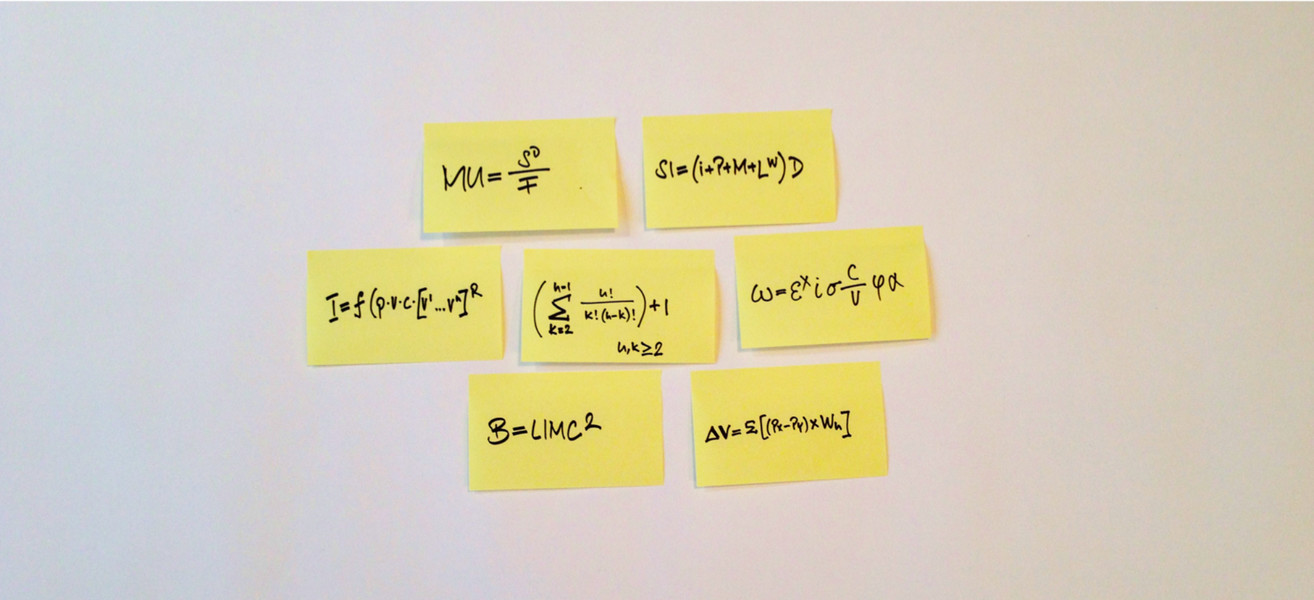 MU = S^D / F
SI=(i+P+M+L^W)D
I=f(p·v·c·[v^1...v^n]^R
(∑_{k=2}^{n-1} n!/(k!(n-k)!))+1
n,k≥2
ω=ε^x iσ C/V φα
B=LIMC2
ΔV=Σ[(P_t-P_f)×W_n]